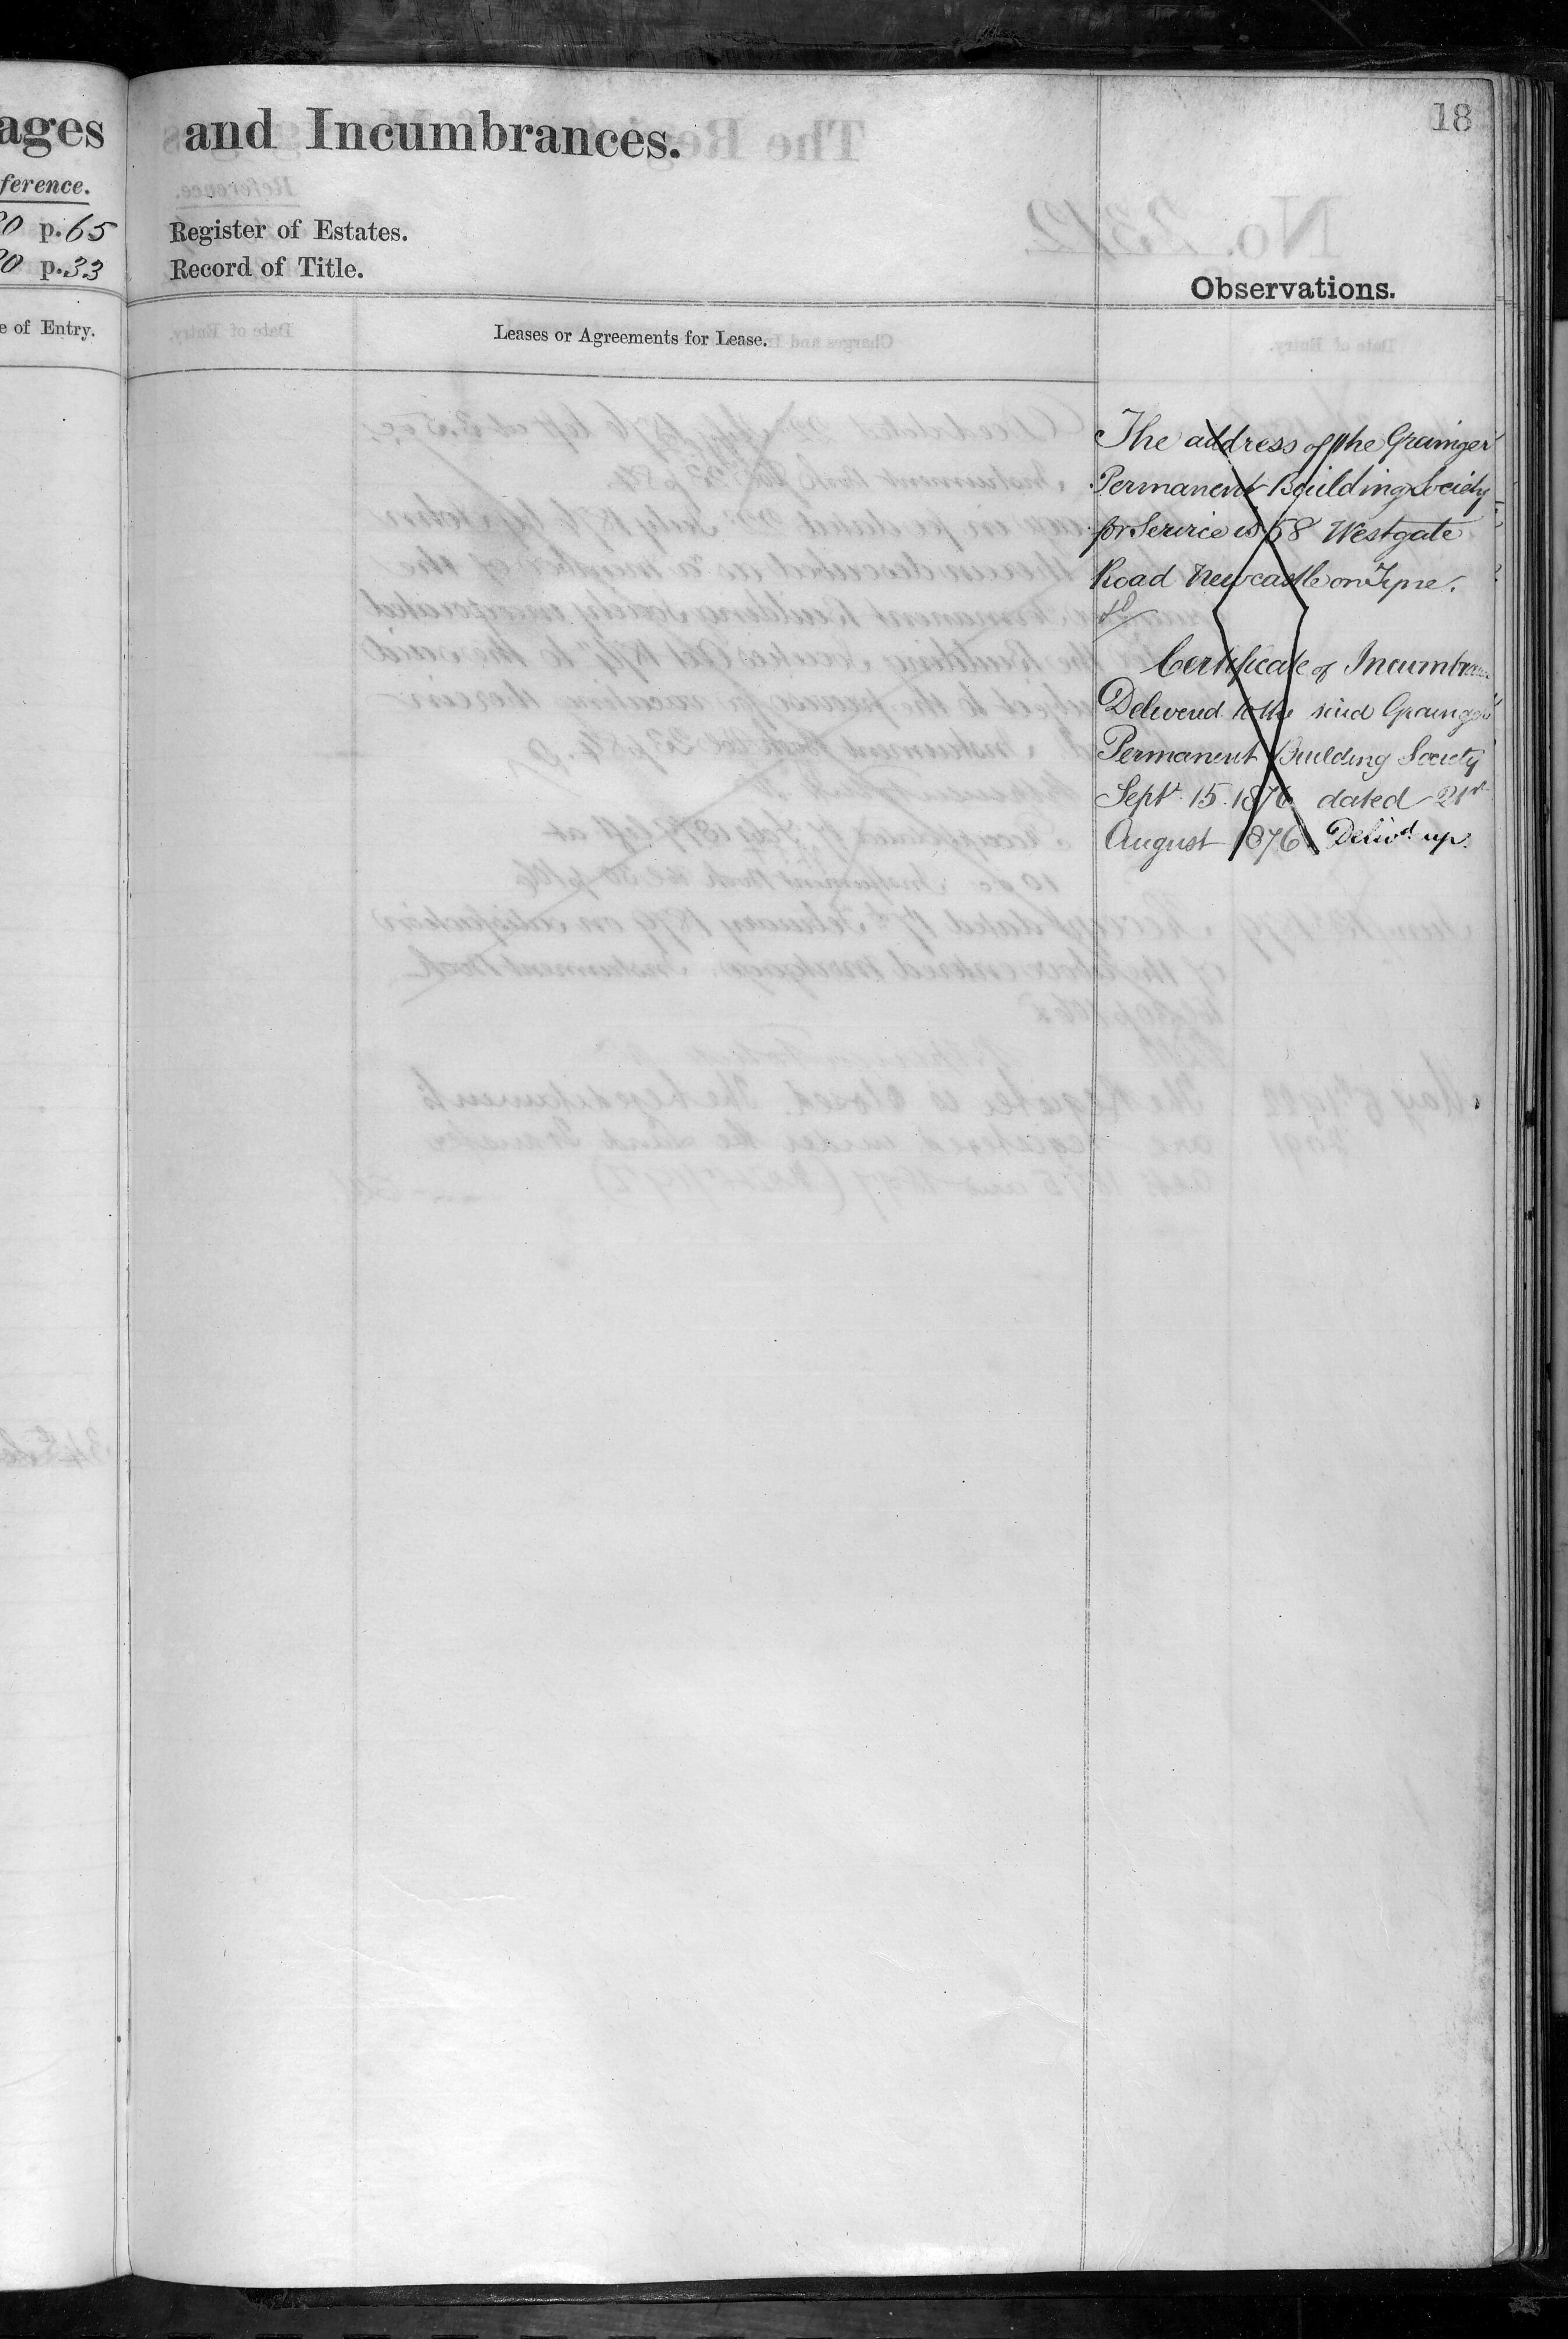 18
ages
and Incumbrances.
ference.
0 p. 65
Register of Estates.
0 p. 33
Record of Title.
Observations.
e of Entry.
Leases or Agreements for Lease.
The address of the Grainger
Permanent Building Society
for Service is 58 Westgate
Road Newcastle on Tyne.
Certificate of Incumbrance
Delivered to the said Grainger
Permanent Building Society
Sept. 15. 1876 dated 21st
August 1876. Deliv.d up.